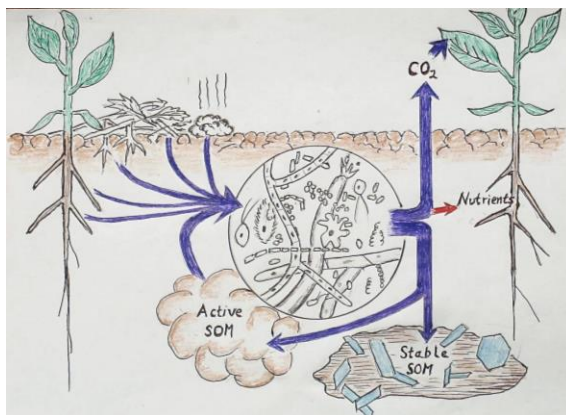 CO₂
Nutrients
Active
SOM
Stable
SOM